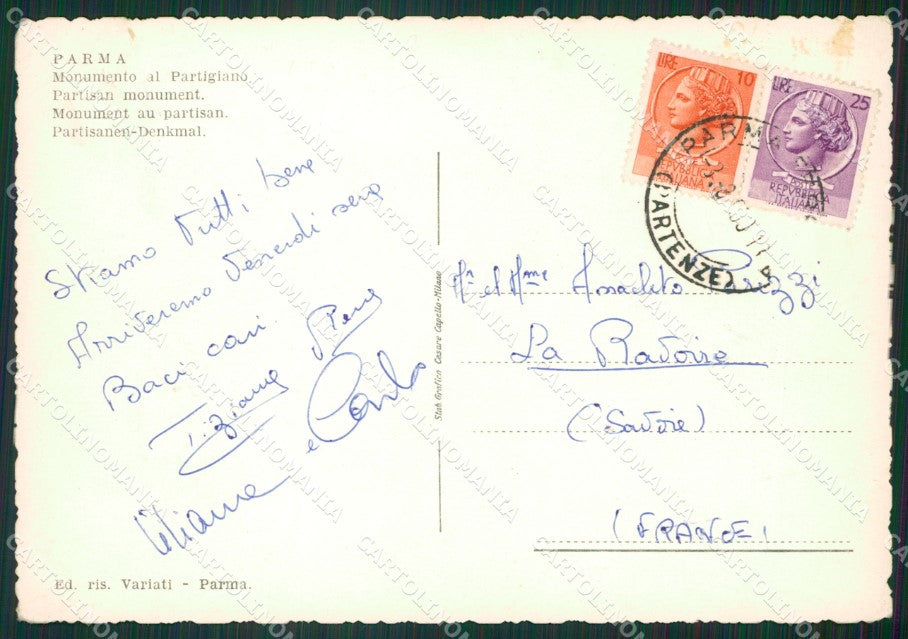 PARMA
Monumento al Partigiano.
Partisan monument.
Monument au partisan.
Partisanen-Denkmal.
LIRE 10
REPVBBLICA
ITALIANA
LIRE 25
POSTE
REPVBBLICA
ITALIANA
PARMA
(PARTENZE)
Stiamo tutti bene
Arriveremo Venerdi sera
Baci cari
Tiziana
e Carlo
Liliana
Mr et Mme
La Ravoire
(Savoie)
(FRANCE)
Stab. Grafico Cesare Capello-Milano
Ed. ris. Variati - Parma.
CARTOLINOMANIA